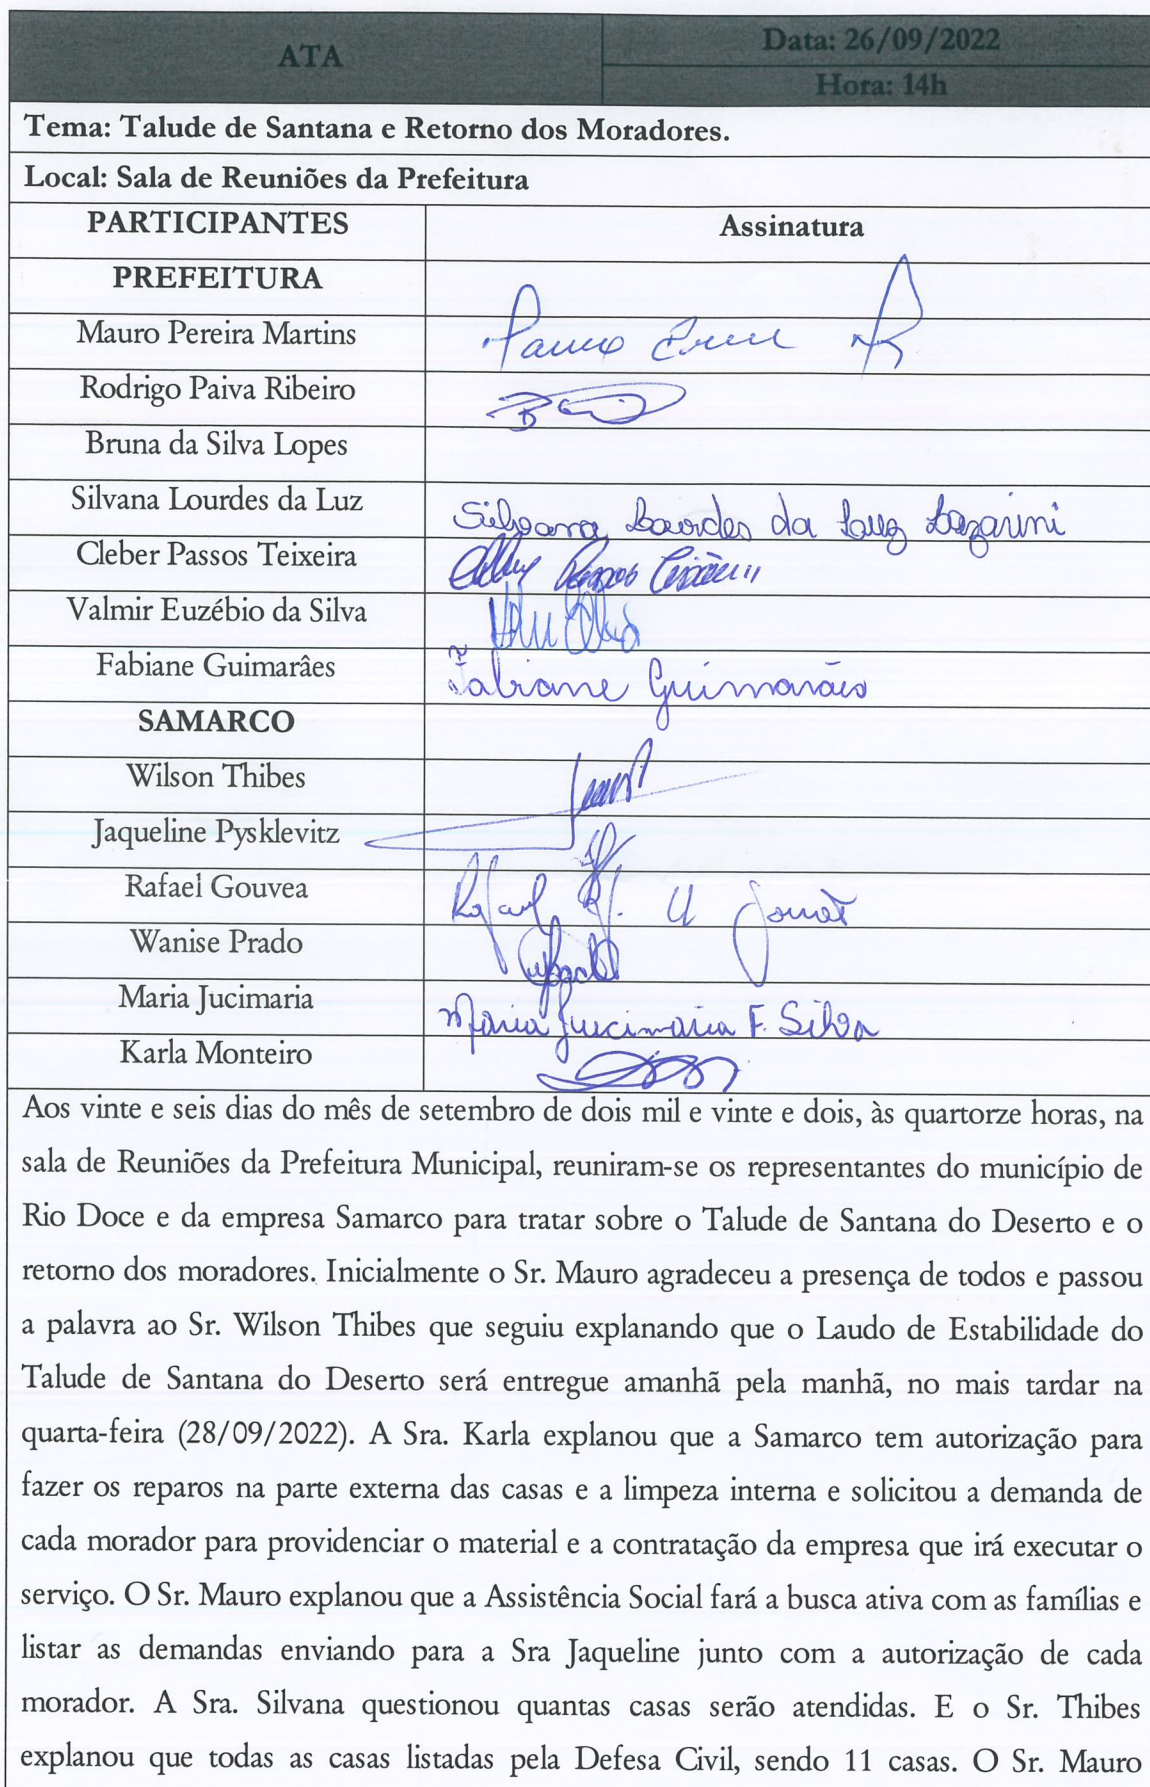 ATA
Data: 26/09/2022
Hora: 14h
Tema: Talude de Santana e Retorno dos Moradores.
Local: Sala de Reuniões da Prefeitura
PARTICIPANTES Assinatura
PREFEITURA
Mauro Pereira Martins
Rodrigo Paiva Ribeiro
Bruna da Silva Lopes
Silvana Lourdes da Luz Silvana Lourdes da Luz Lazarini
Cleber Passos Teixeira
Valmir Euzébio da Silva
Fabiane Guimarâes Fabiane Guimarães
SAMARCO
Wilson Thibes
Jaqueline Pysklevitz
Rafael Gouvea Rafael
Wanise Prado
Maria Jucimaria Maria Jucimaria F. Silva
Karla Monteiro
Aos vinte e seis dias do mês de setembro de dois mil e vinte e dois, às quartorze horas, na
sala de Reuniões da Prefeitura Municipal, reuniram-se os representantes do município de
Rio Doce e da empresa Samarco para tratar sobre o Talude de Santana do Deserto e o
retorno dos moradores. Inicialmente o Sr. Mauro agradeceu a presença de todos e passou
a palavra ao Sr. Wilson Thibes que seguiu explanando que o Laudo de Estabilidade do
Talude de Santana do Deserto será entregue amanhã pela manhã, no mais tardar na
quarta-feira (28/09/2022). A Sra. Karla explanou que a Samarco tem autorização para
fazer os reparos na parte externa das casas e a limpeza interna e solicitou a demanda de
cada morador para providenciar o material e a contratação da empresa que irá executar o
serviço. O Sr. Mauro explanou que a Assistência Social fará a busca ativa com as famílias e
listar as demandas enviando para a Sra Jaqueline junto com a autorização de cada
morador. A Sra. Silvana questionou quantas casas serão atendidas. E o Sr. Thibes
explanou que todas as casas listadas pela Defesa Civil, sendo 11 casas. O Sr. Mauro